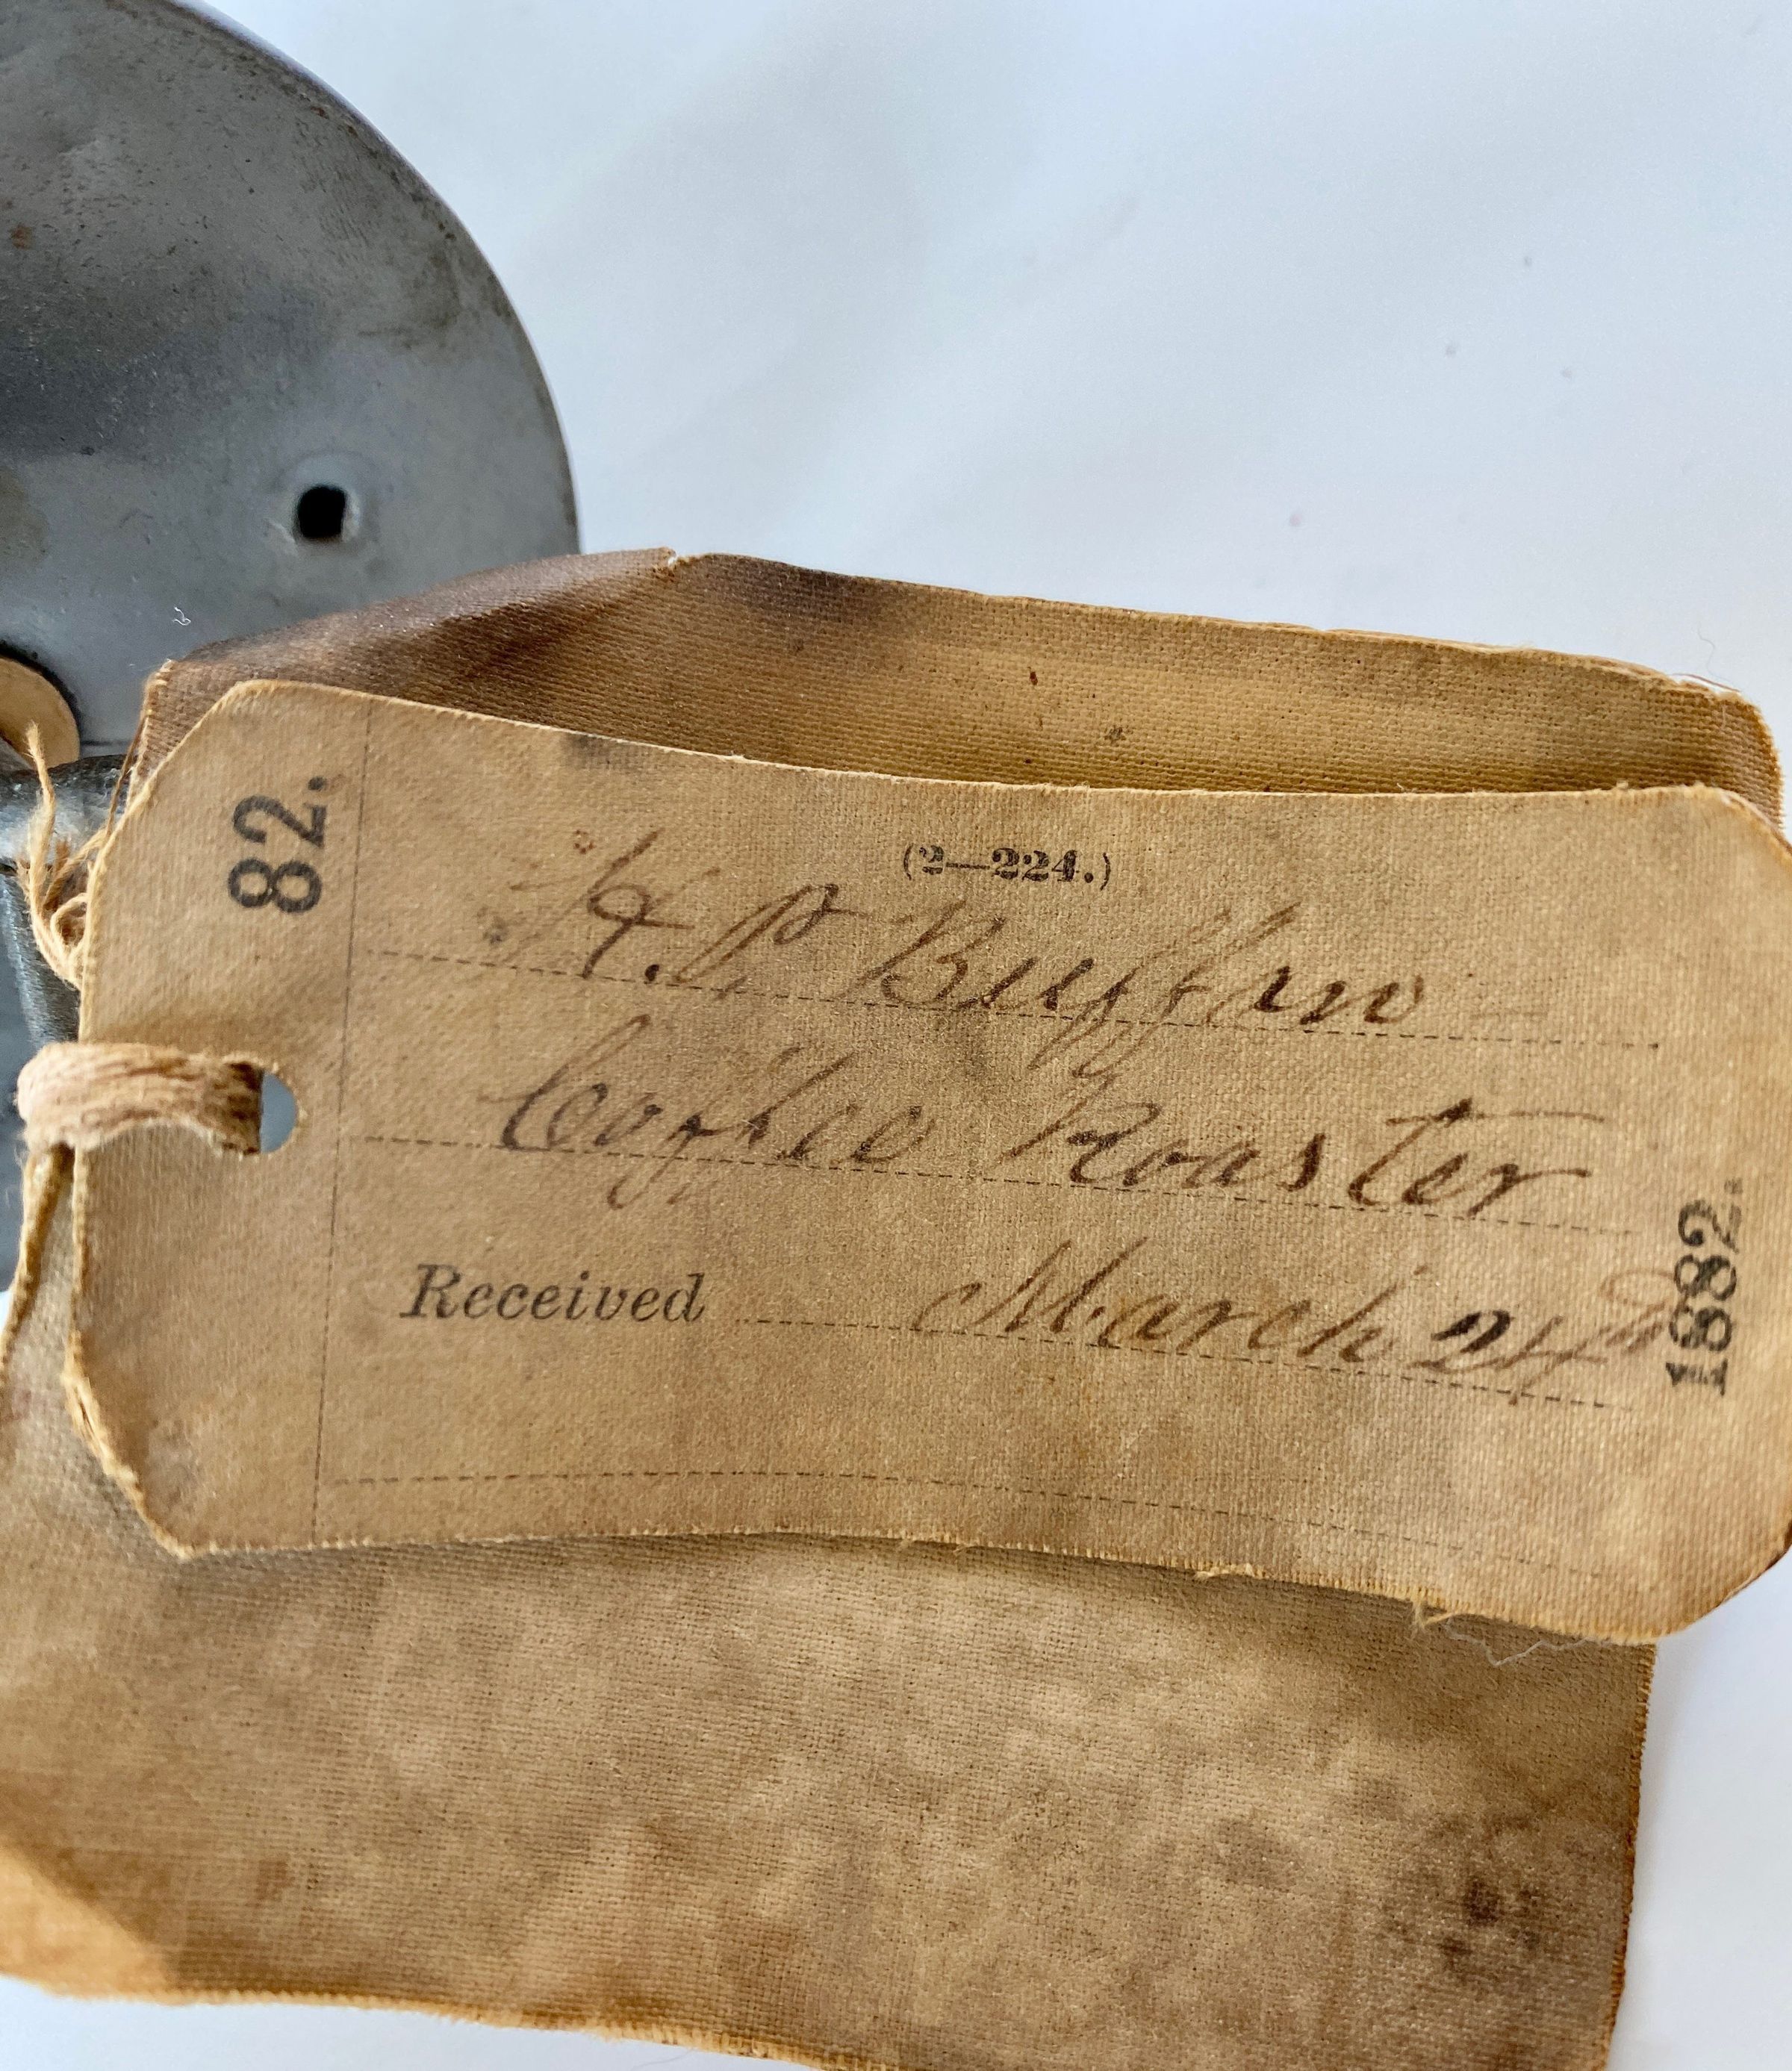 82.
(2—224.)
H. P.
Coffee Roaster
Received March 24th
1882.